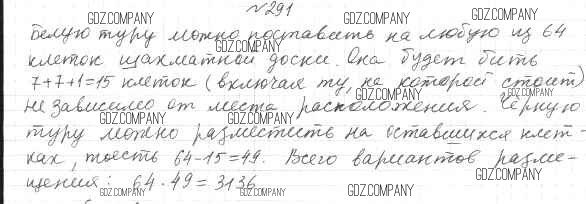 №291
Белую туру можно поставить на любую из 64
клеток шахматной доски. Она будет бить
7+7+1=15 клеток (включая ту, на которой стоит)
независимо от места расположения. Черную
туру можно разместить на оставшихся клет-
ках, тоесть 64-15=49. Всего вариантов разме-
щения: 64·49=3136
GDZ.COMPANY
GDZ.COMPANY
GDZ.COMPANY
GDZ.COMPANY
GDZ.COMPANY
GDZ.COMPANY
GDZ.COMPANY
GDZ.COMPANY
GDZ.COMPANY
GDZ.COMPANY
GDZ.COMPANY
GDZ.COMPANY
GDZ.COMPANY